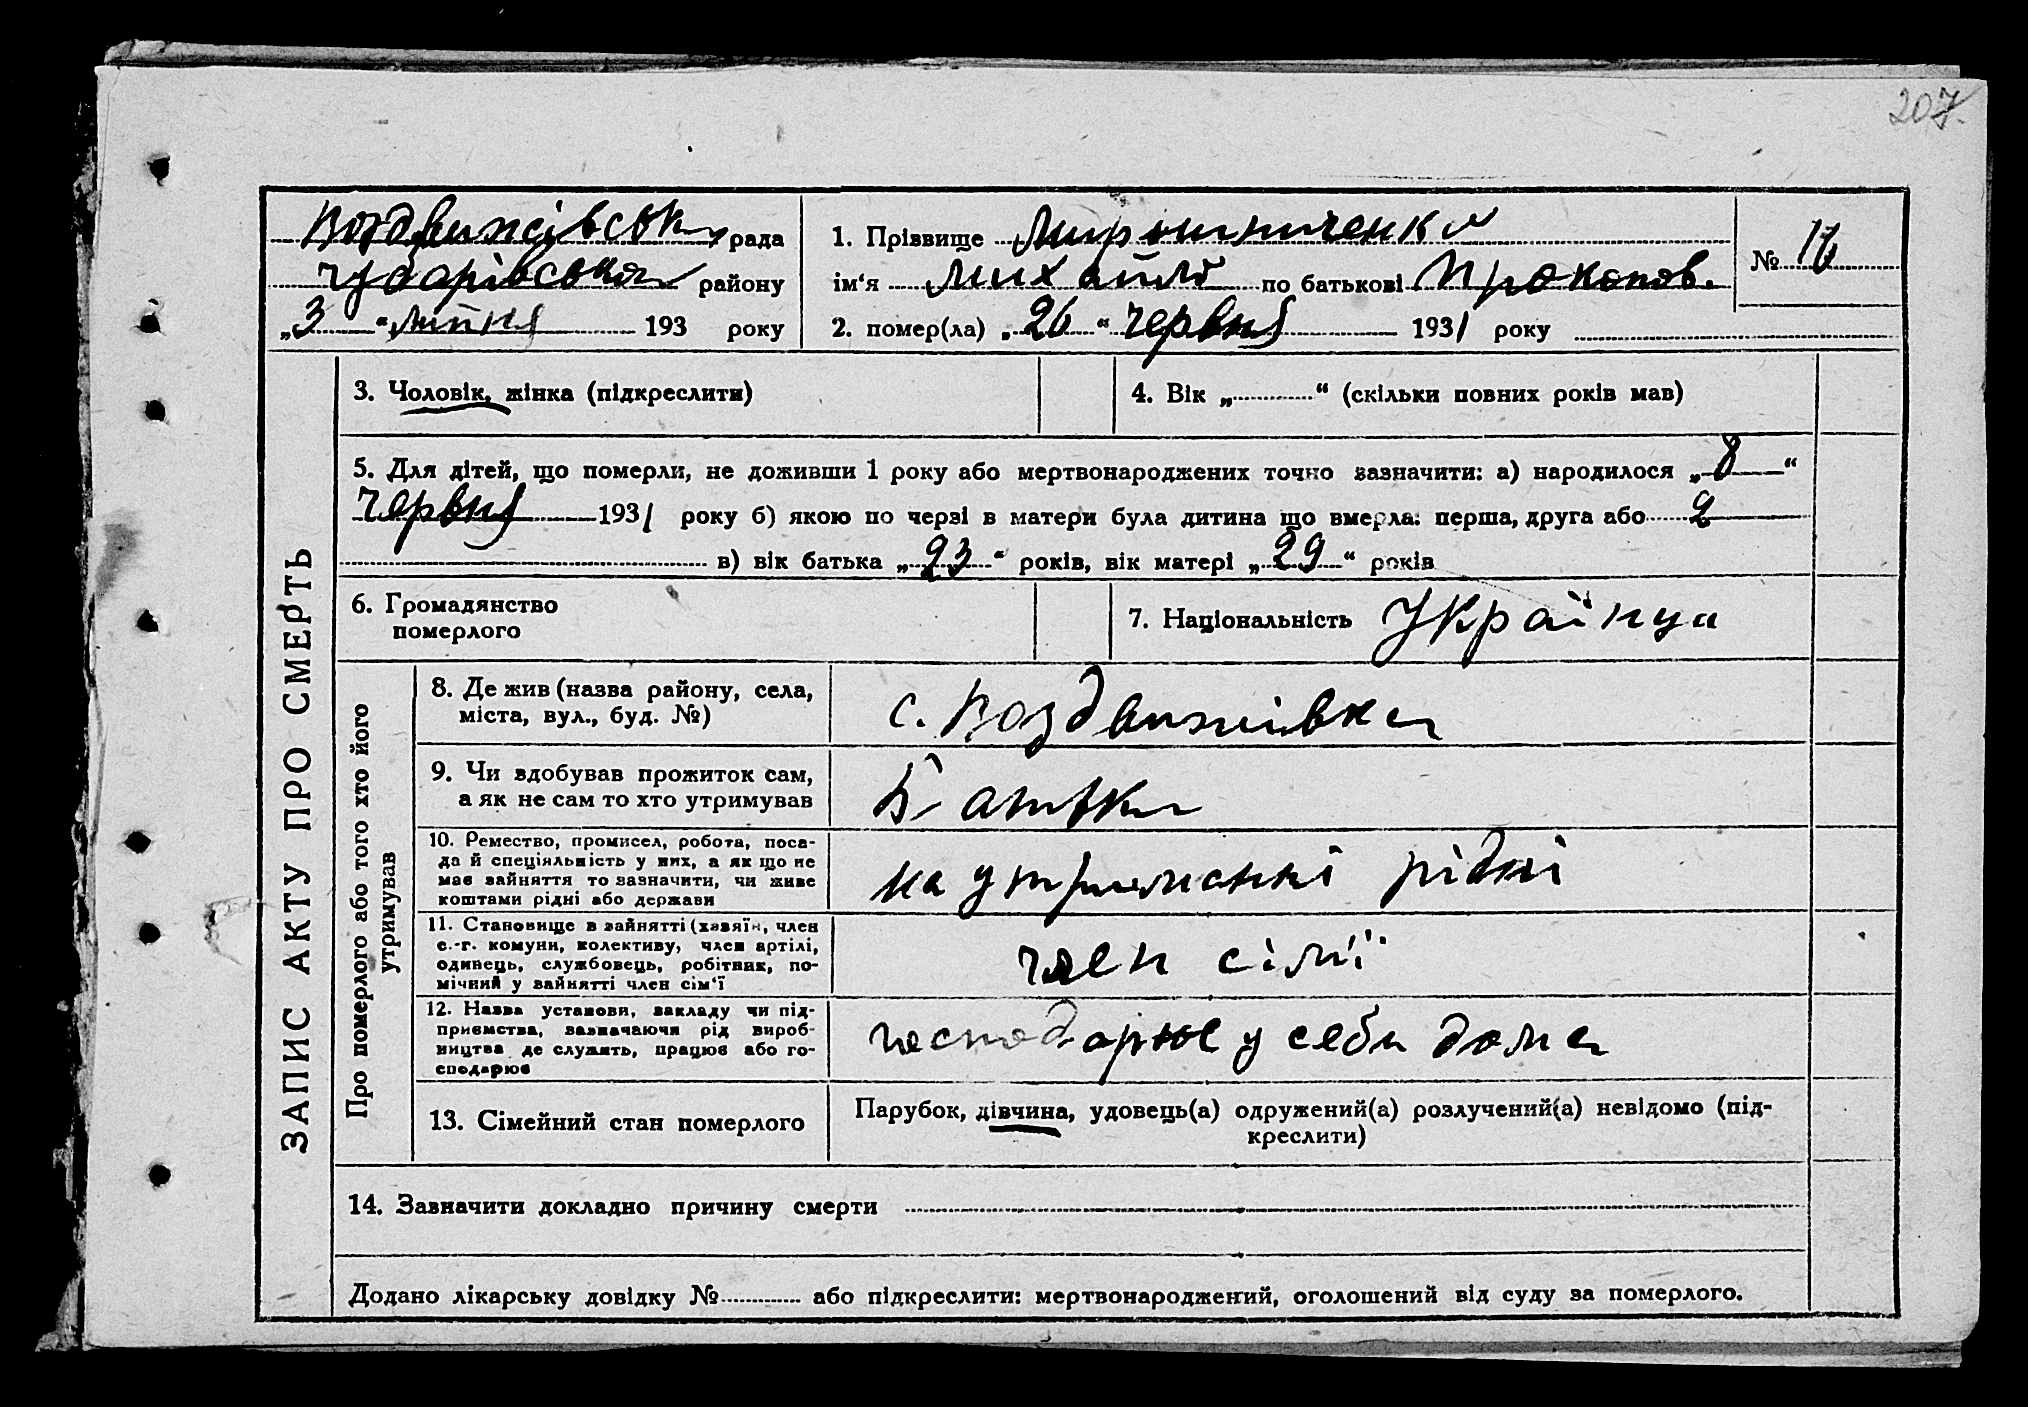 207.
Воздвижівська рада
Чубарівського району
„3“ липня 193 року
1. Прізвище Мирошниченко
ім‘я Михайло по батькові Прокопов.
№ 16
2. помер(ла) „26“ червня 1931 року
ЗАПИС АКТУ ПРО СМЕРТЬ
3. Чоловік, жінка (підкреслити)
4. Вік „ “ (скільки повних років мав)
5. Для дітей, що померли, не доживши 1 року або мертвонароджених точно зазначити: а) народилося „8“
червня 1931 року б) якою по черзі в матери була дитина що вмерла: перша, друга або 2
в) вік батька „23“ років, вік матері „29“ років
6. Громадянство
померлого
7. Національність Українця
Про померлого або того хто його
утримував
8. Де жив (назва району, села,
міста, вул., буд. №)
с. Воздвижівка
9. Чи здобував прожиток сам,
а як не сам то хто утримував
Батьки
10. Ремество, промисел, робота, поса-
да й спеціяльність у них, а як що не
має зайняття то зазначити, чи живе
коштами рідні або держави
на утриманні рідні
11. Становище в зайнятті (хазяїн, член
с.-г. комуни, колективу, член артілі,
одинець, службовець, робітник, по-
мічний у зайнятті член сім‘ї
член сімї
12. Назва установи, закладу чи під-
приємства, зазначаючи рід вироб-
ництва де служить, працює або го-
сподарює
господарює у себе дома
13. Сімейний стан померлого
Парубок, дівчина, удовець(а) одружений(а) розлучений(а) невідомо (під-
креслити)
14. Зазначити докладно причину смерти
Додано лікарську довідку № або підкреслити: мертвонароджений, оголошений від суду за померлого.